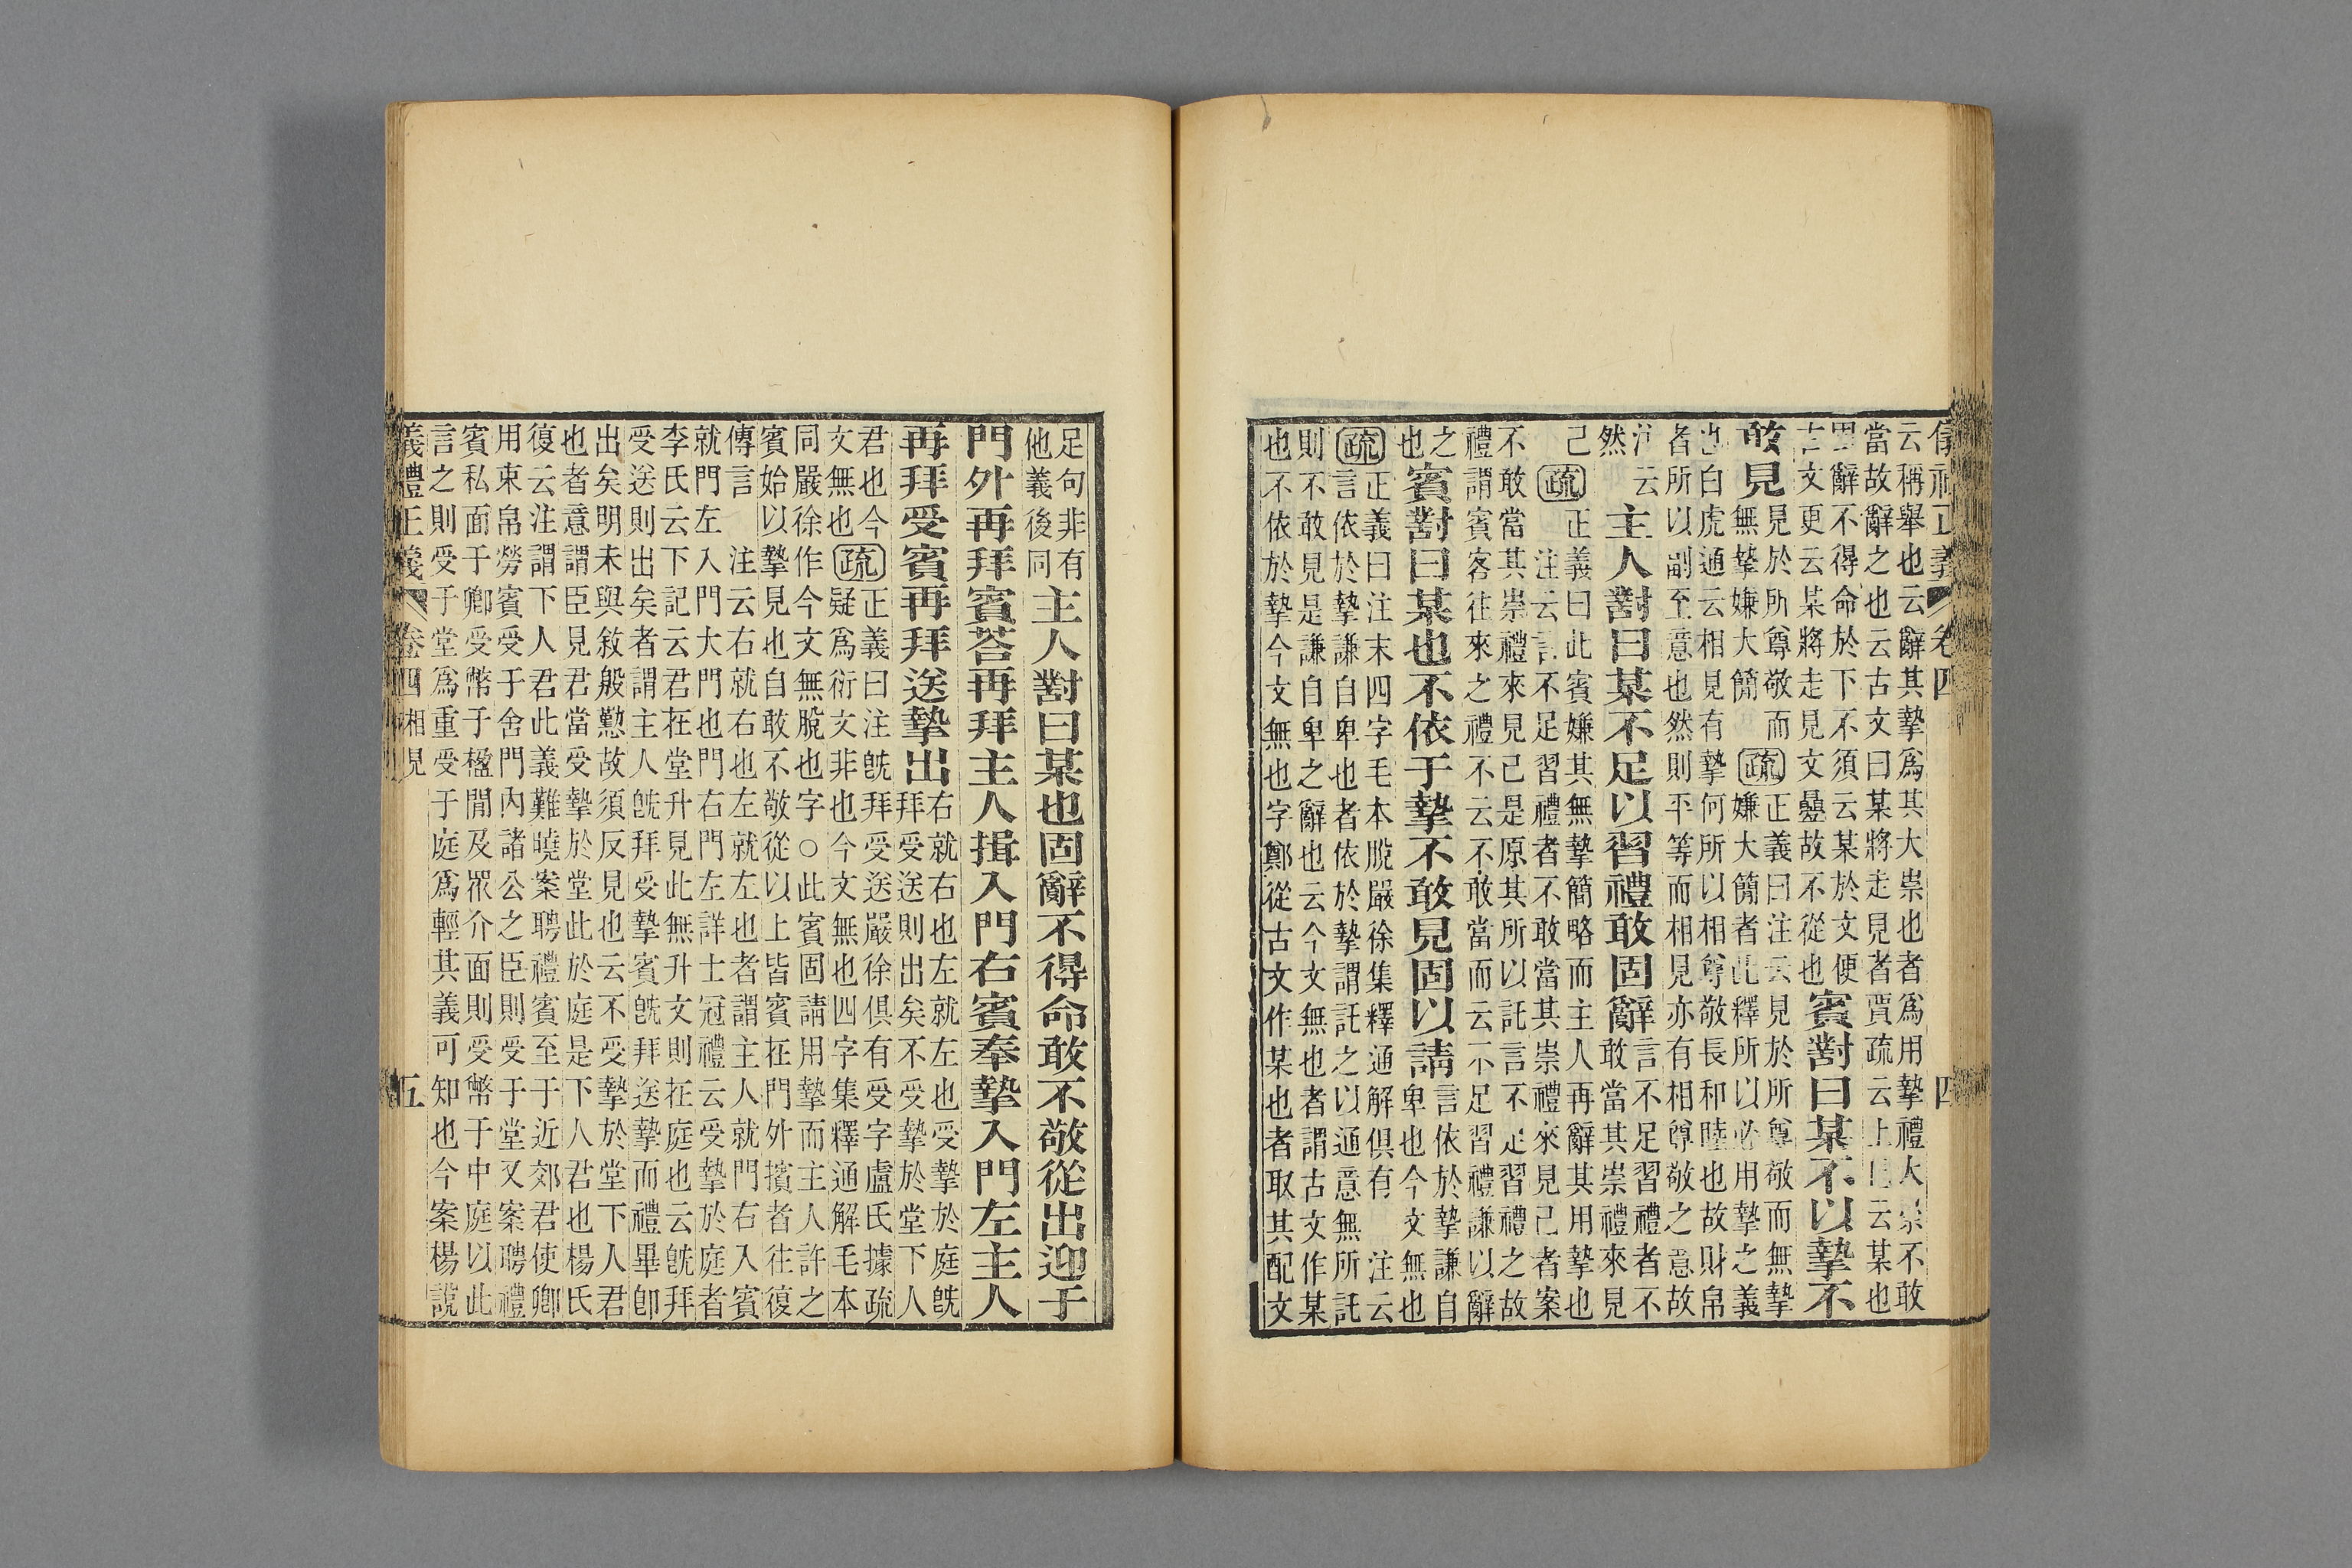 儀禮正義 卷四 四
云稱舉也云辭其摯爲其大崇也者爲用摯禮大崇不敢
當故辭之也云古文曰某將走見者賈疏云上已云某也
固辭不得命於下不須云某於文便
古文更云某將走見文疊故不從也
賓對曰某不以摯不
敢見
見於所尊敬而
無摯嫌大簡
疏
正義曰注云見於所尊敬而無摯
嫌大簡者此釋所以必用摯之義
也白虎通云相見有摯何所以相尊敬長和睦也故財帛
者所以副至意也然則平等而相見亦有相尊敬之意故
注云
然
主人對曰某不足以習禮敢固辭
言不足習禮者不
敢當其崇禮來見
己
疏
正義曰此賓嫌其無摯簡略而主人再辭其用摯也
注云言不足習禮者不敢當其崇禮來見己者案
不敢當其崇禮來見己是原其所以託言不足習禮之故
禮謂賓客往來之禮不云不敢當而云不足習禮謙以辭
之
也
賓對曰某也不依于摯不敢見固以請
言依於摯謙自
卑也今文無也
疏
正義曰注末四字毛本脫嚴徐集釋通解俱有 注云
言依於摯謙自卑也者依於摯謂託之以通意無所託
則不敢見是謙自卑之辭也云今文無也者謂古文作某
也不依於摯今文無也字鄭從古文作某也者取其配文
足句非有
他義後同
主人對曰某也固辭不得命敢不敬從出迎于
門外再拜賓荅再拜主人揖入門右賓奉摯入門左主人
再拜受賓再拜送摯出
右就右也左就左也受摯於庭旣
拜受送則出矣不受摯於堂下人
君也今
文無也
疏
正義曰注旣拜受送嚴徐俱有受字盧氏據疏
疑爲衍文非也今文無也四字集釋通解毛本
同嚴徐作今文無脫也字○此賓固請用摯而主人許之
賓始以摯見也自敢不敬從以上皆賓在門外擯者往復
傳言 注云右就右也左就左也者謂主人就門右入賓
就門左入門大門也門右門左詳士冠禮云受摯於庭者
李氏云下記云君在堂升見此無升文則在庭也云旣拜
受送則出矣者謂主人旣拜受摯賓旣拜送摯而禮畢卽
出矣明未與敘殷懃故須反見也云不受摯於堂下人君
也者意謂臣見君當受摯於堂此於庭是下人君也楊氏
復云注謂下人君此義難曉案聘禮賓至于近郊君使卿
用束帛勞賓受于舍門內諸公之臣則受于堂又案聘禮
賓私面于卿受幣于楹閒及眾介面則受幣于中庭以此
言之則受于堂爲重受于庭爲輕其義可知也今案楊說
義禮正義 卷四 相見 五